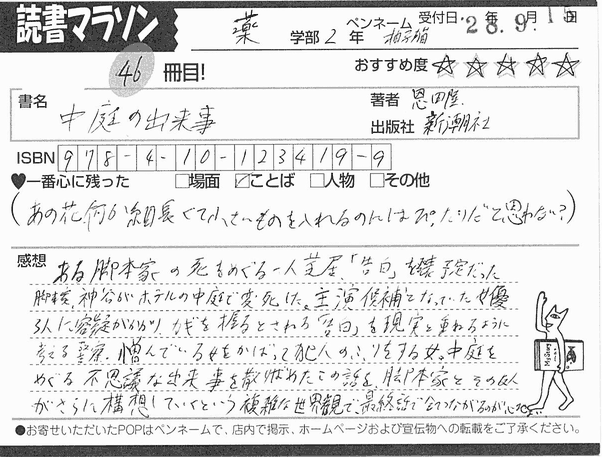 読書マラソン
薬 学部 2 年 ペンネーム 柚子猫 受付日・28年9.月15日
46 冊目! おすすめ度 ☆☆☆☆☆
書名 中庭の出来事 著者 恩田陸
出版社 新潮社
ISBN 978-4-10-123419-9
♥一番心に残った □場面 ☑ことば □人物 □その他
(あの花何か細長くて小さいものを入れるのにはぴったりだと思わない?)
感想 ある脚本家の死をめぐる一人芝居、「告白」を 予定だった
脚本家、神谷がホテルの中庭で変死した。主演候補となっていた女優
3人に容疑がかかり、カギを握るとされる「告白」を現実と重ねるように
考える警察。憎んでいる女をかばって犯人のふりをする女。中庭を
めぐる不思議な出来事を散りばめたこの話を、脚本家とその友人
がさらに構想していくという複雑な世界観で最終話で全てつながるのが
●お寄せいただいたPOPはペンネームで、店内で掲示、ホームページおよび宣伝物への転載をご了承ください。